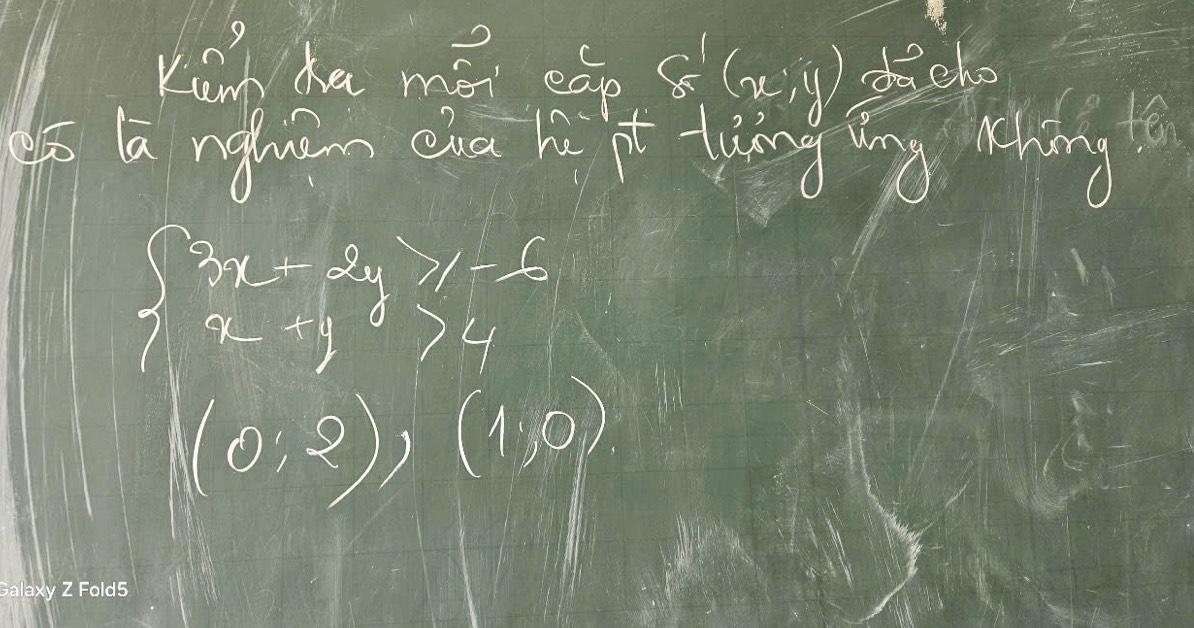 Kiểm tra mỗi cặp số (x;y) đã cho
có là nghiệm của hệ pt tương ứng không.
{ 3x + 2y ⩾ -6
x + y > 4
(0;2), (1;0).
Galaxy Z Fold5